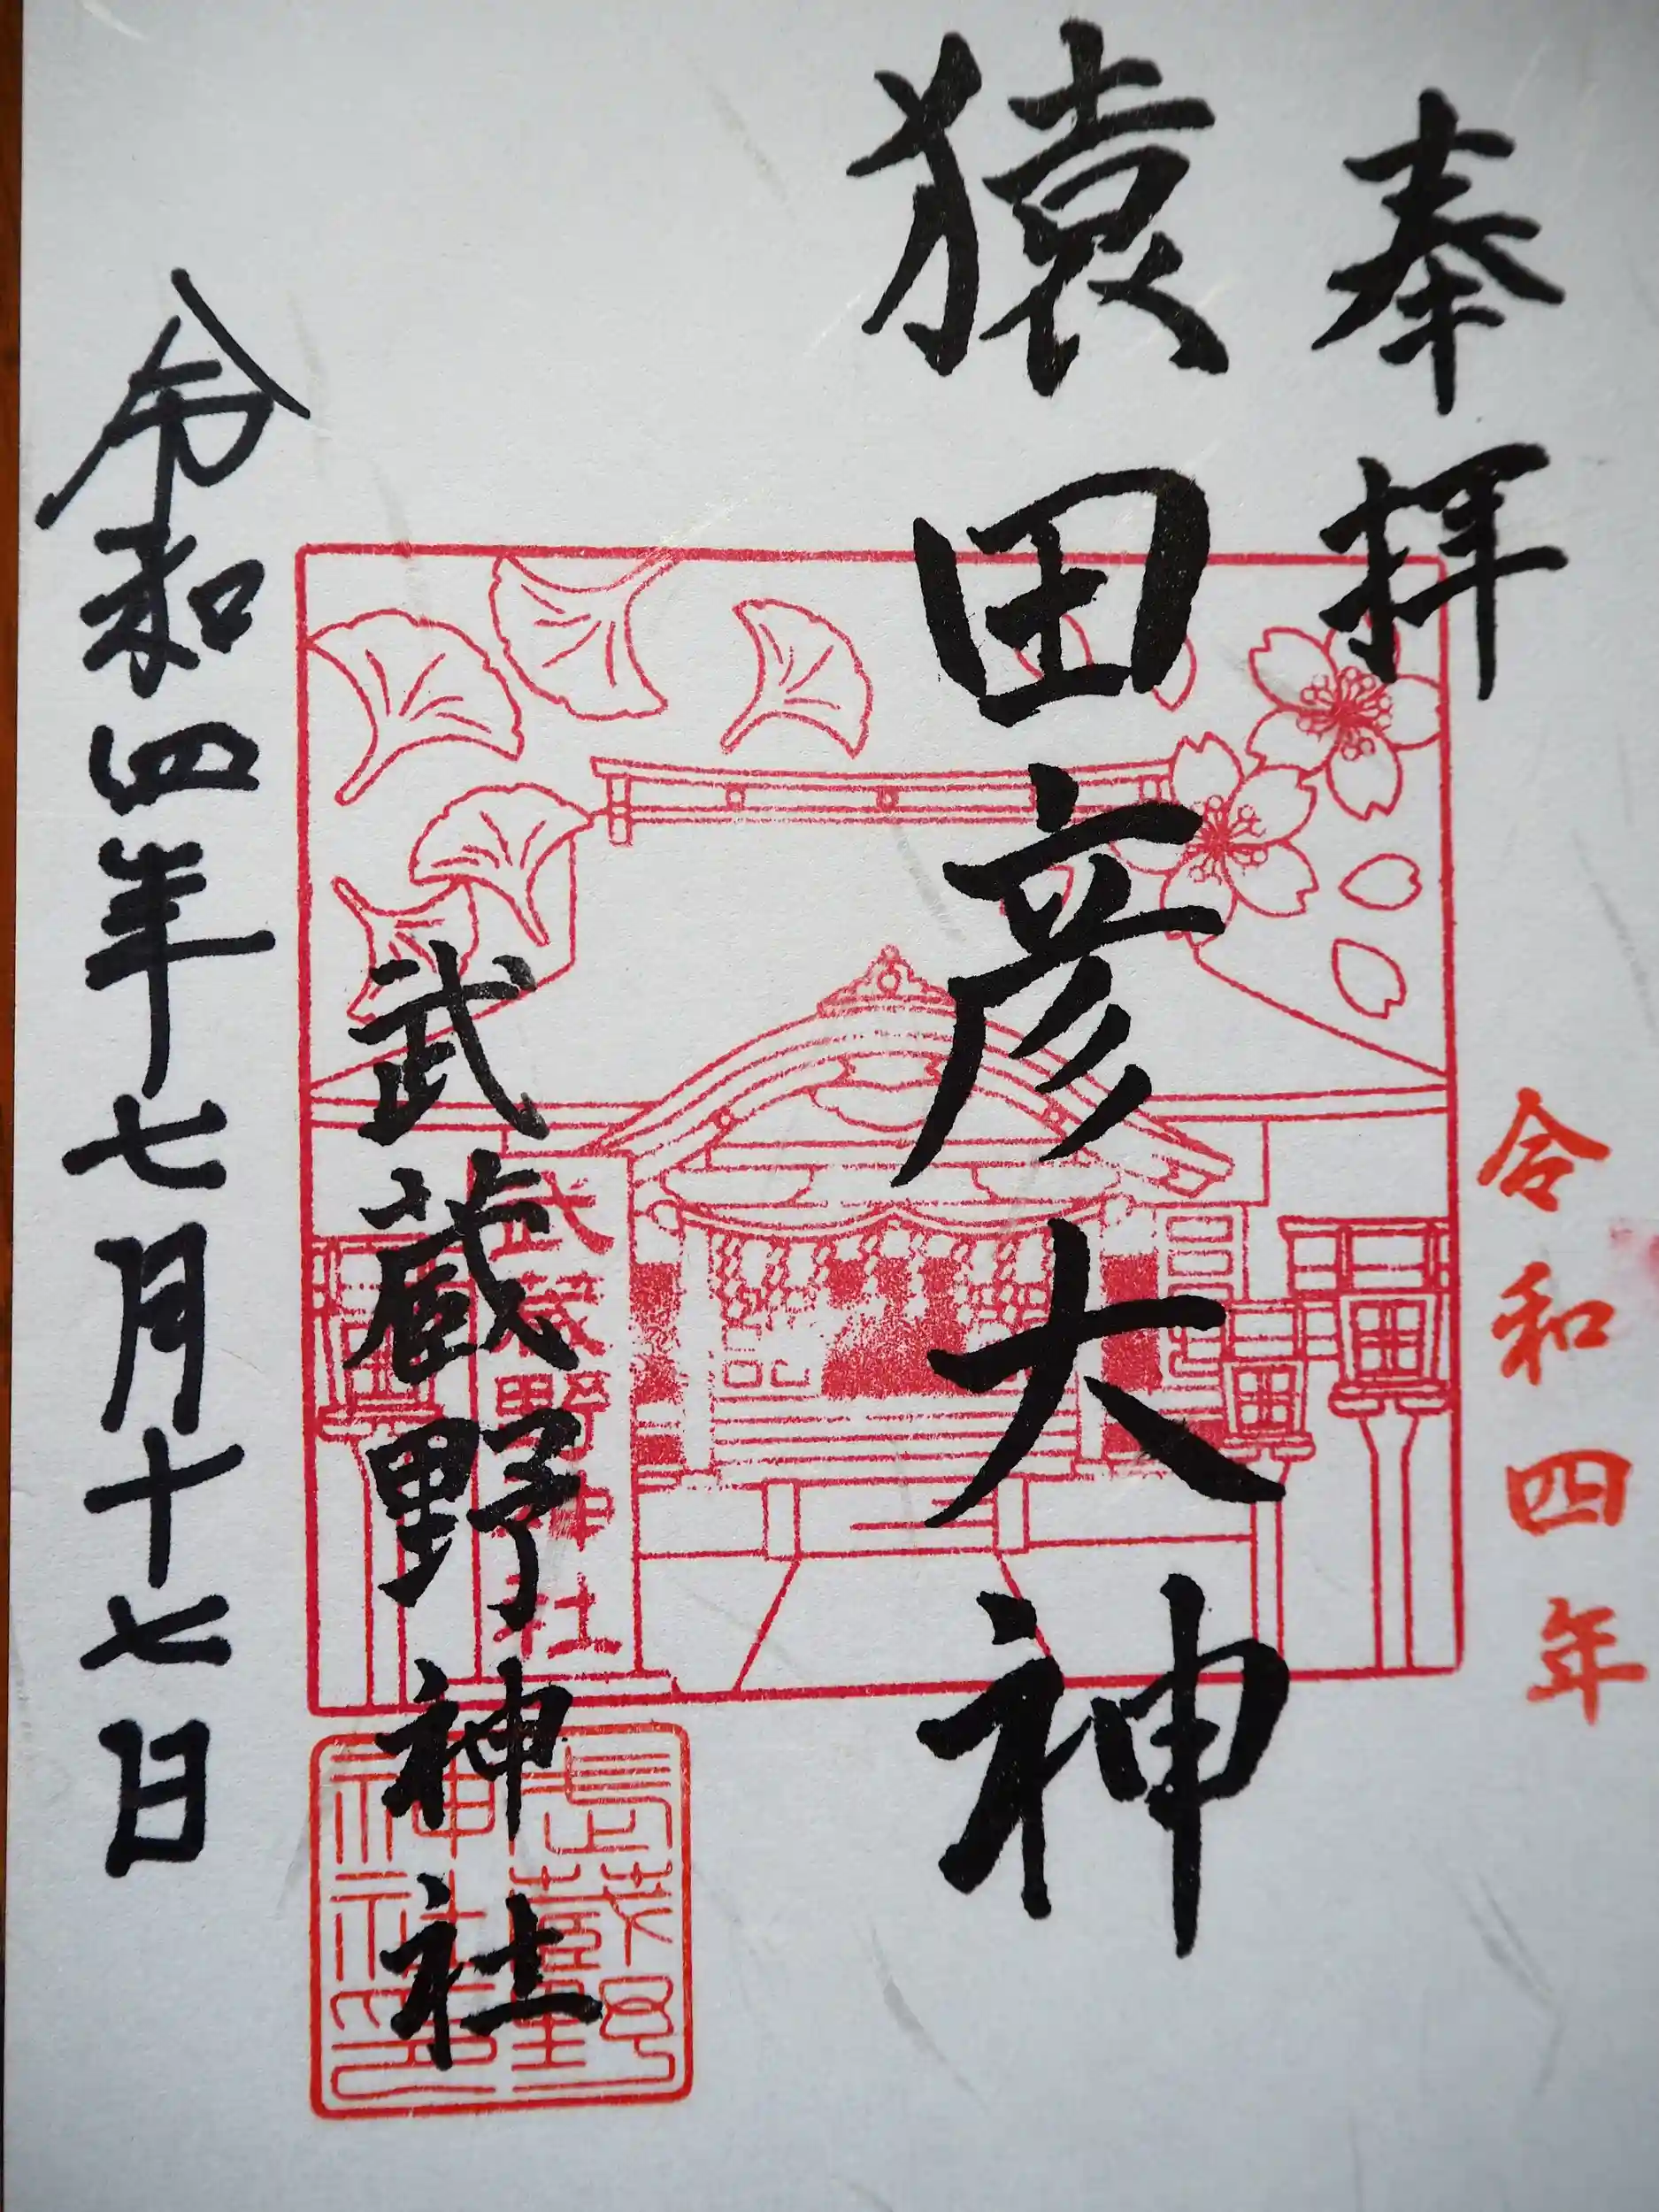 奉拝
令和四年
猿田彦大神
武蔵野神社
武蔵野神社
武蔵野神社印
令和四年七月十七日